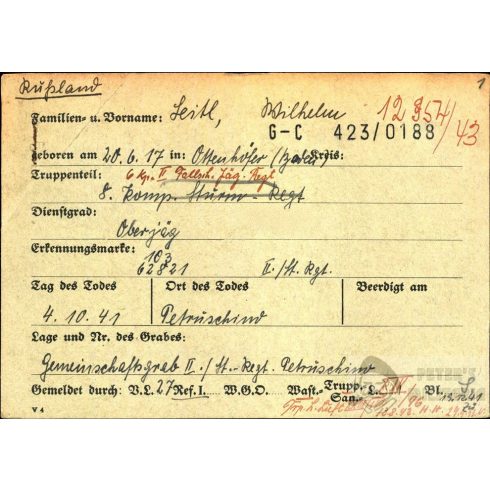 Rußland
1
Familien- u. Vorname: Seitl, Wilhelm
12 954/43
G-C 423/0188
geboren am 20.6.17 in: Ottenhöfer (Baden) Kreis:
Truppenteil: 6 Kp. II Fallsch. Jäg. Regt
8. Komp. Sturm-Regt
Dienstgrad: Oberjäg
Erkennungsmarke: 103
62821 II./St. Rgt.
Tag des Todes Ort des Todes Beerdigt am
4.10.41 Petruschino
Lage und Nr. des Grabes:
Gemeinschaftsgrab II./St.-Regt. Petruschino
Gemeldet durch: V.L. 27 Ref. I. W.G.O. Wast.- Trupp.- San.- L. XIV/96 Bl. 5
V 4